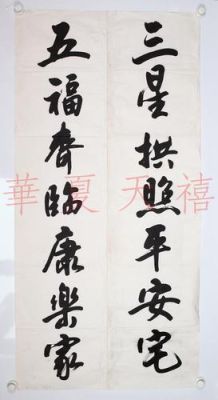 三星拱照平安宅
五福齊臨康樂家
華夏天禧